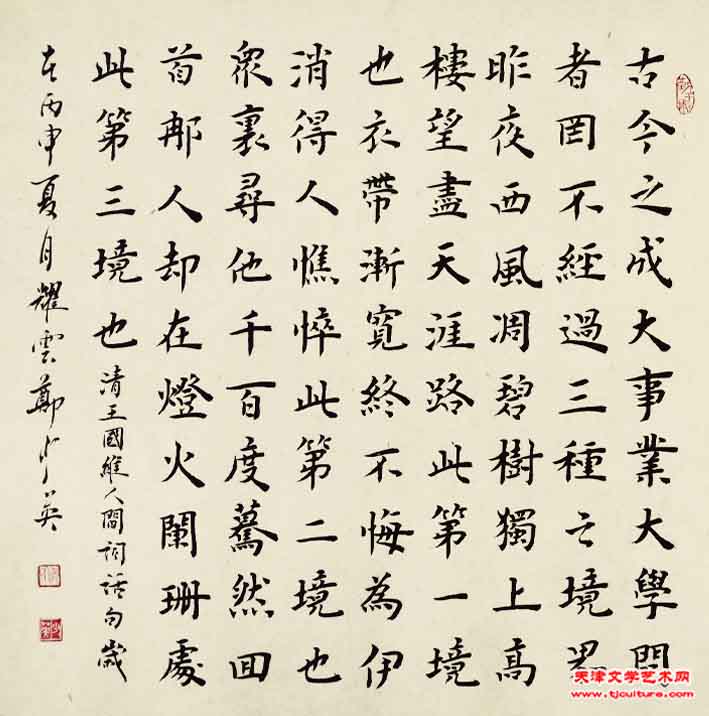 古今之成大事業大學問
者罔不經過三種之境界
昨夜西風凋碧樹獨上高
樓望盡天涯路此第一境
也衣帶漸寬終不悔為伊
消得人憔悴此第二境也
衆裏尋他千百度驀然回
首那人却在燈火闌珊處
此第三境也 清王國維人間詞話句歲
在丙申夏月耀雲鄭少英
天津文学艺术网
www.tjculture.com